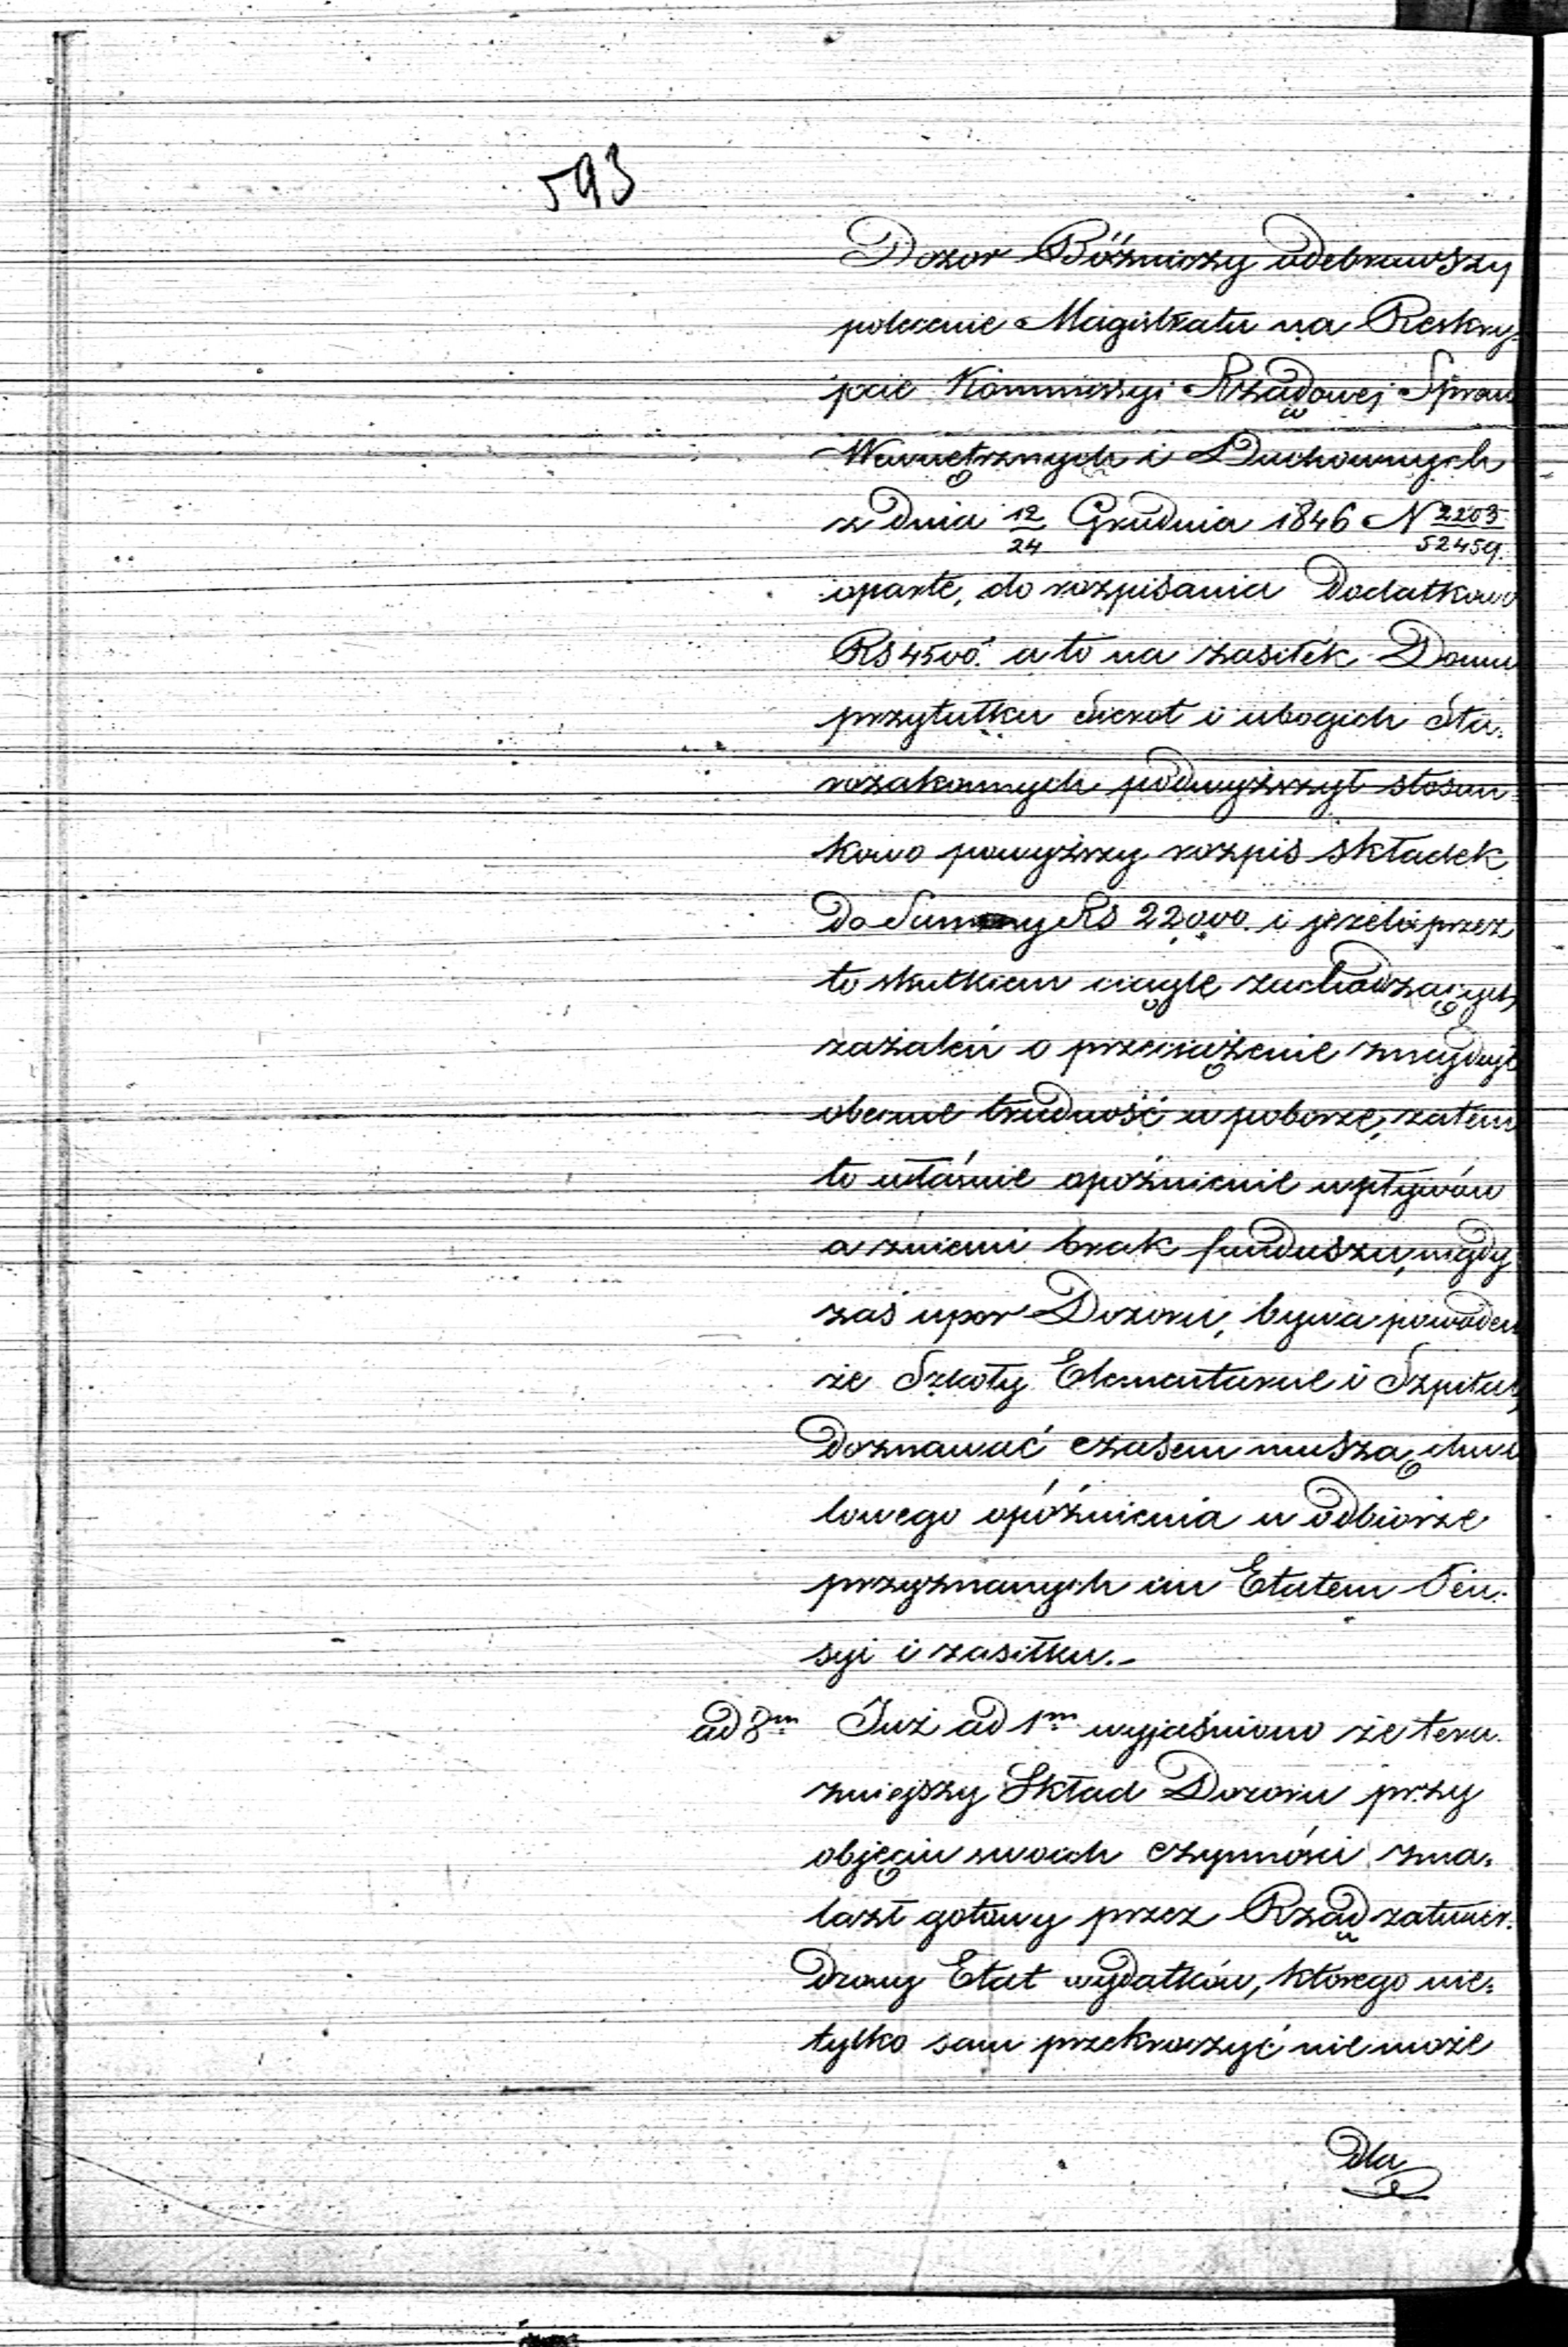 593
Dozor Bóżniczy odebrawszy
polecenie Magistratu na Reskry-
pcie Kommissyi Rządowej Spraw
Wewnętrznych i Duchownych
z dnia 12/24 Grudnia 1846 N 2203/52459.
oparte, do rozpisania Dodatkowo
RS 4500. a to na zasiłek Domu
przytułku Sierot i ubogich Sta-
rozakonnych podwyższył stosun-
kowo powyższy rozpis składek
Do Summy RS 22000. i jeżeli przez
to skutkiem ciągle zachodzących
zażaleń o przeciążenie znajduje
obecnie trudność w poborze, zatem
to właśnie opoźnienie wpływów
a zniemi brak funduszu, nigdy
zaś upor Dozoru, bywa powodem
że Szkoły Elementarne i Szpitale
Doznawać czasem muszą chwi
lowego opóźnienia w odbiorze
przyznanych im Etatem Pen-
syi i zasiłku.-
ad 8m Już ad 1m wyjaśniono że tera-
zniejszy Skład Dozoru przy
objęciu swoich czynności zna-
lazł gotowy przez Rząd zatwier-
Dzony Etat wydatków, którego nie-
tylko sam przekroczyć nie może
Dla